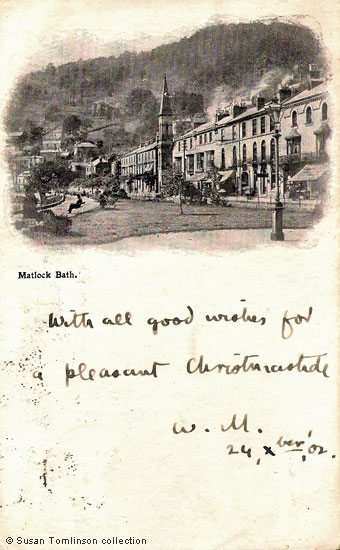 Matlock Bath.
With all good wishes for
a pleasant Christmastide
W. M.
24, xber, '02.
© Susan Tomlinson collection